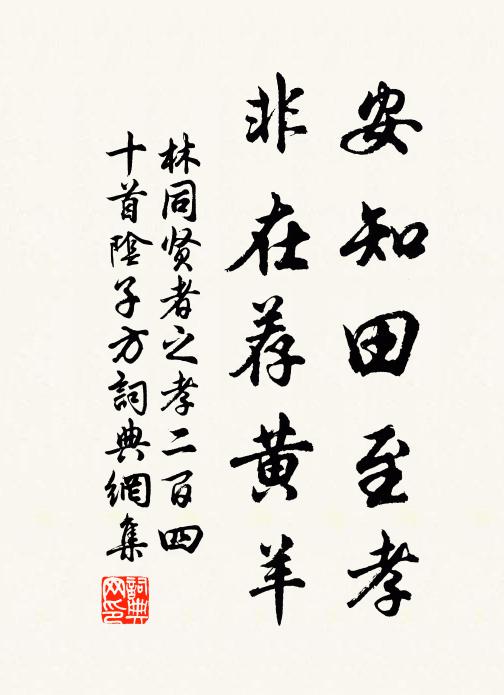 安知田至孝
非在荐黄羊
林同贤者之孝二百四
十首陰子方詞典網集
詞典
网印